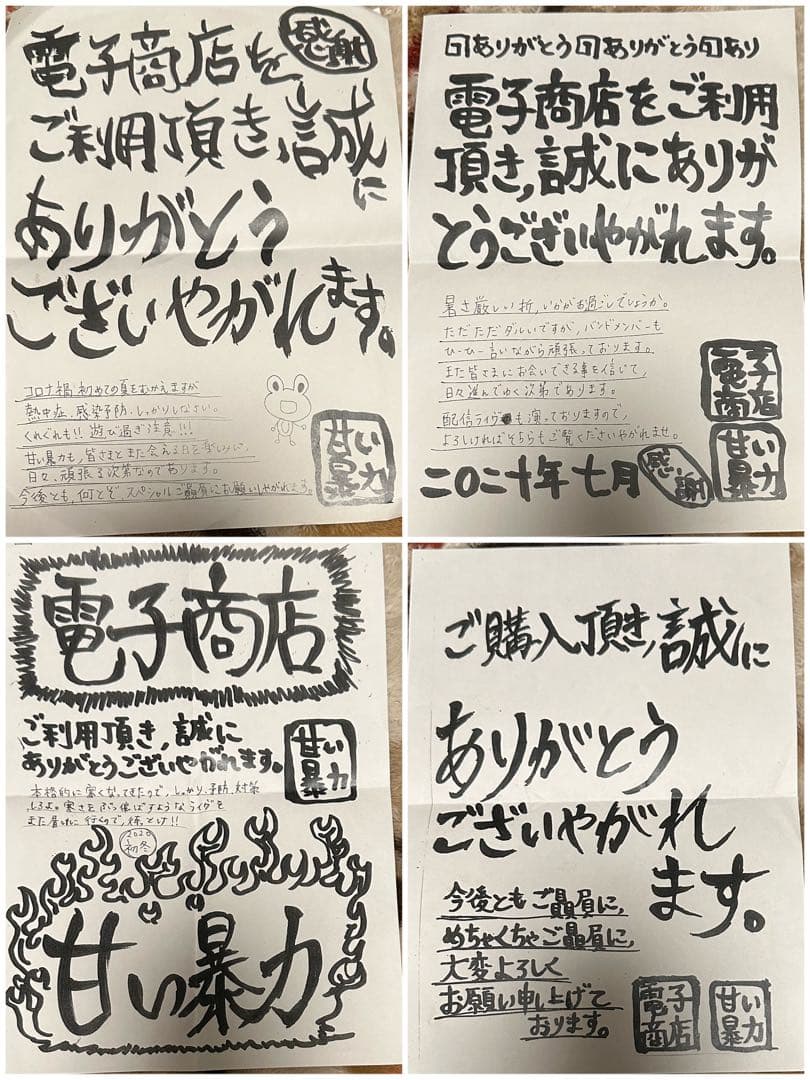 電子商店を
感謝
ご利用頂き、誠に
ありがとう
ございやがれます。
コロナ禍初めての夏をむかえますが
熱中症、感染予防、しっかりしなさい。
くれぐれも!!遊び過ぎ注意!!!
甘い暴力も、皆さまとまた会える日を楽しみに、
日々、頑張る次第なのであります。
今後とも、何とぞ、スペシャルご贔屓にお願いしやがれます。
甘い
暴力
ありがとう ありがとう あり
電子商店をご利用
頂き、誠にありが
とうございやがれます。
暑さ厳しい折、いかがお過ごしでしょうか。
ただただダルいですが、バンドメンバーも
ひーひー言いながら頑張っております。
また皆さまにお会いできる事を信じて、
日々進んでゆく次第であります。
配信ライヴも演っておりますので、
よろしければそちらもご覧くださいやがれませ。
電子
商店
甘い
暴力
二〇二十年七月
感謝
電子商店
ご利用頂き、誠に
ありがとうございやがれます。
甘い
暴力
本格的に寒くなってきたので、しっかり予防、対策
しろよ。寒さをぶっ飛ばすようなライヴを
また届けに行くので、待っとけ!!
2020
初冬
甘い暴力
ご購入頂き、誠に
ありがとう
ございやがれ
ます。
今後ともご贔屓に、
めちゃくちゃご贔屓に、
大変よろしく
お願い申し上げて
おります。
電子
商店
甘い
暴力